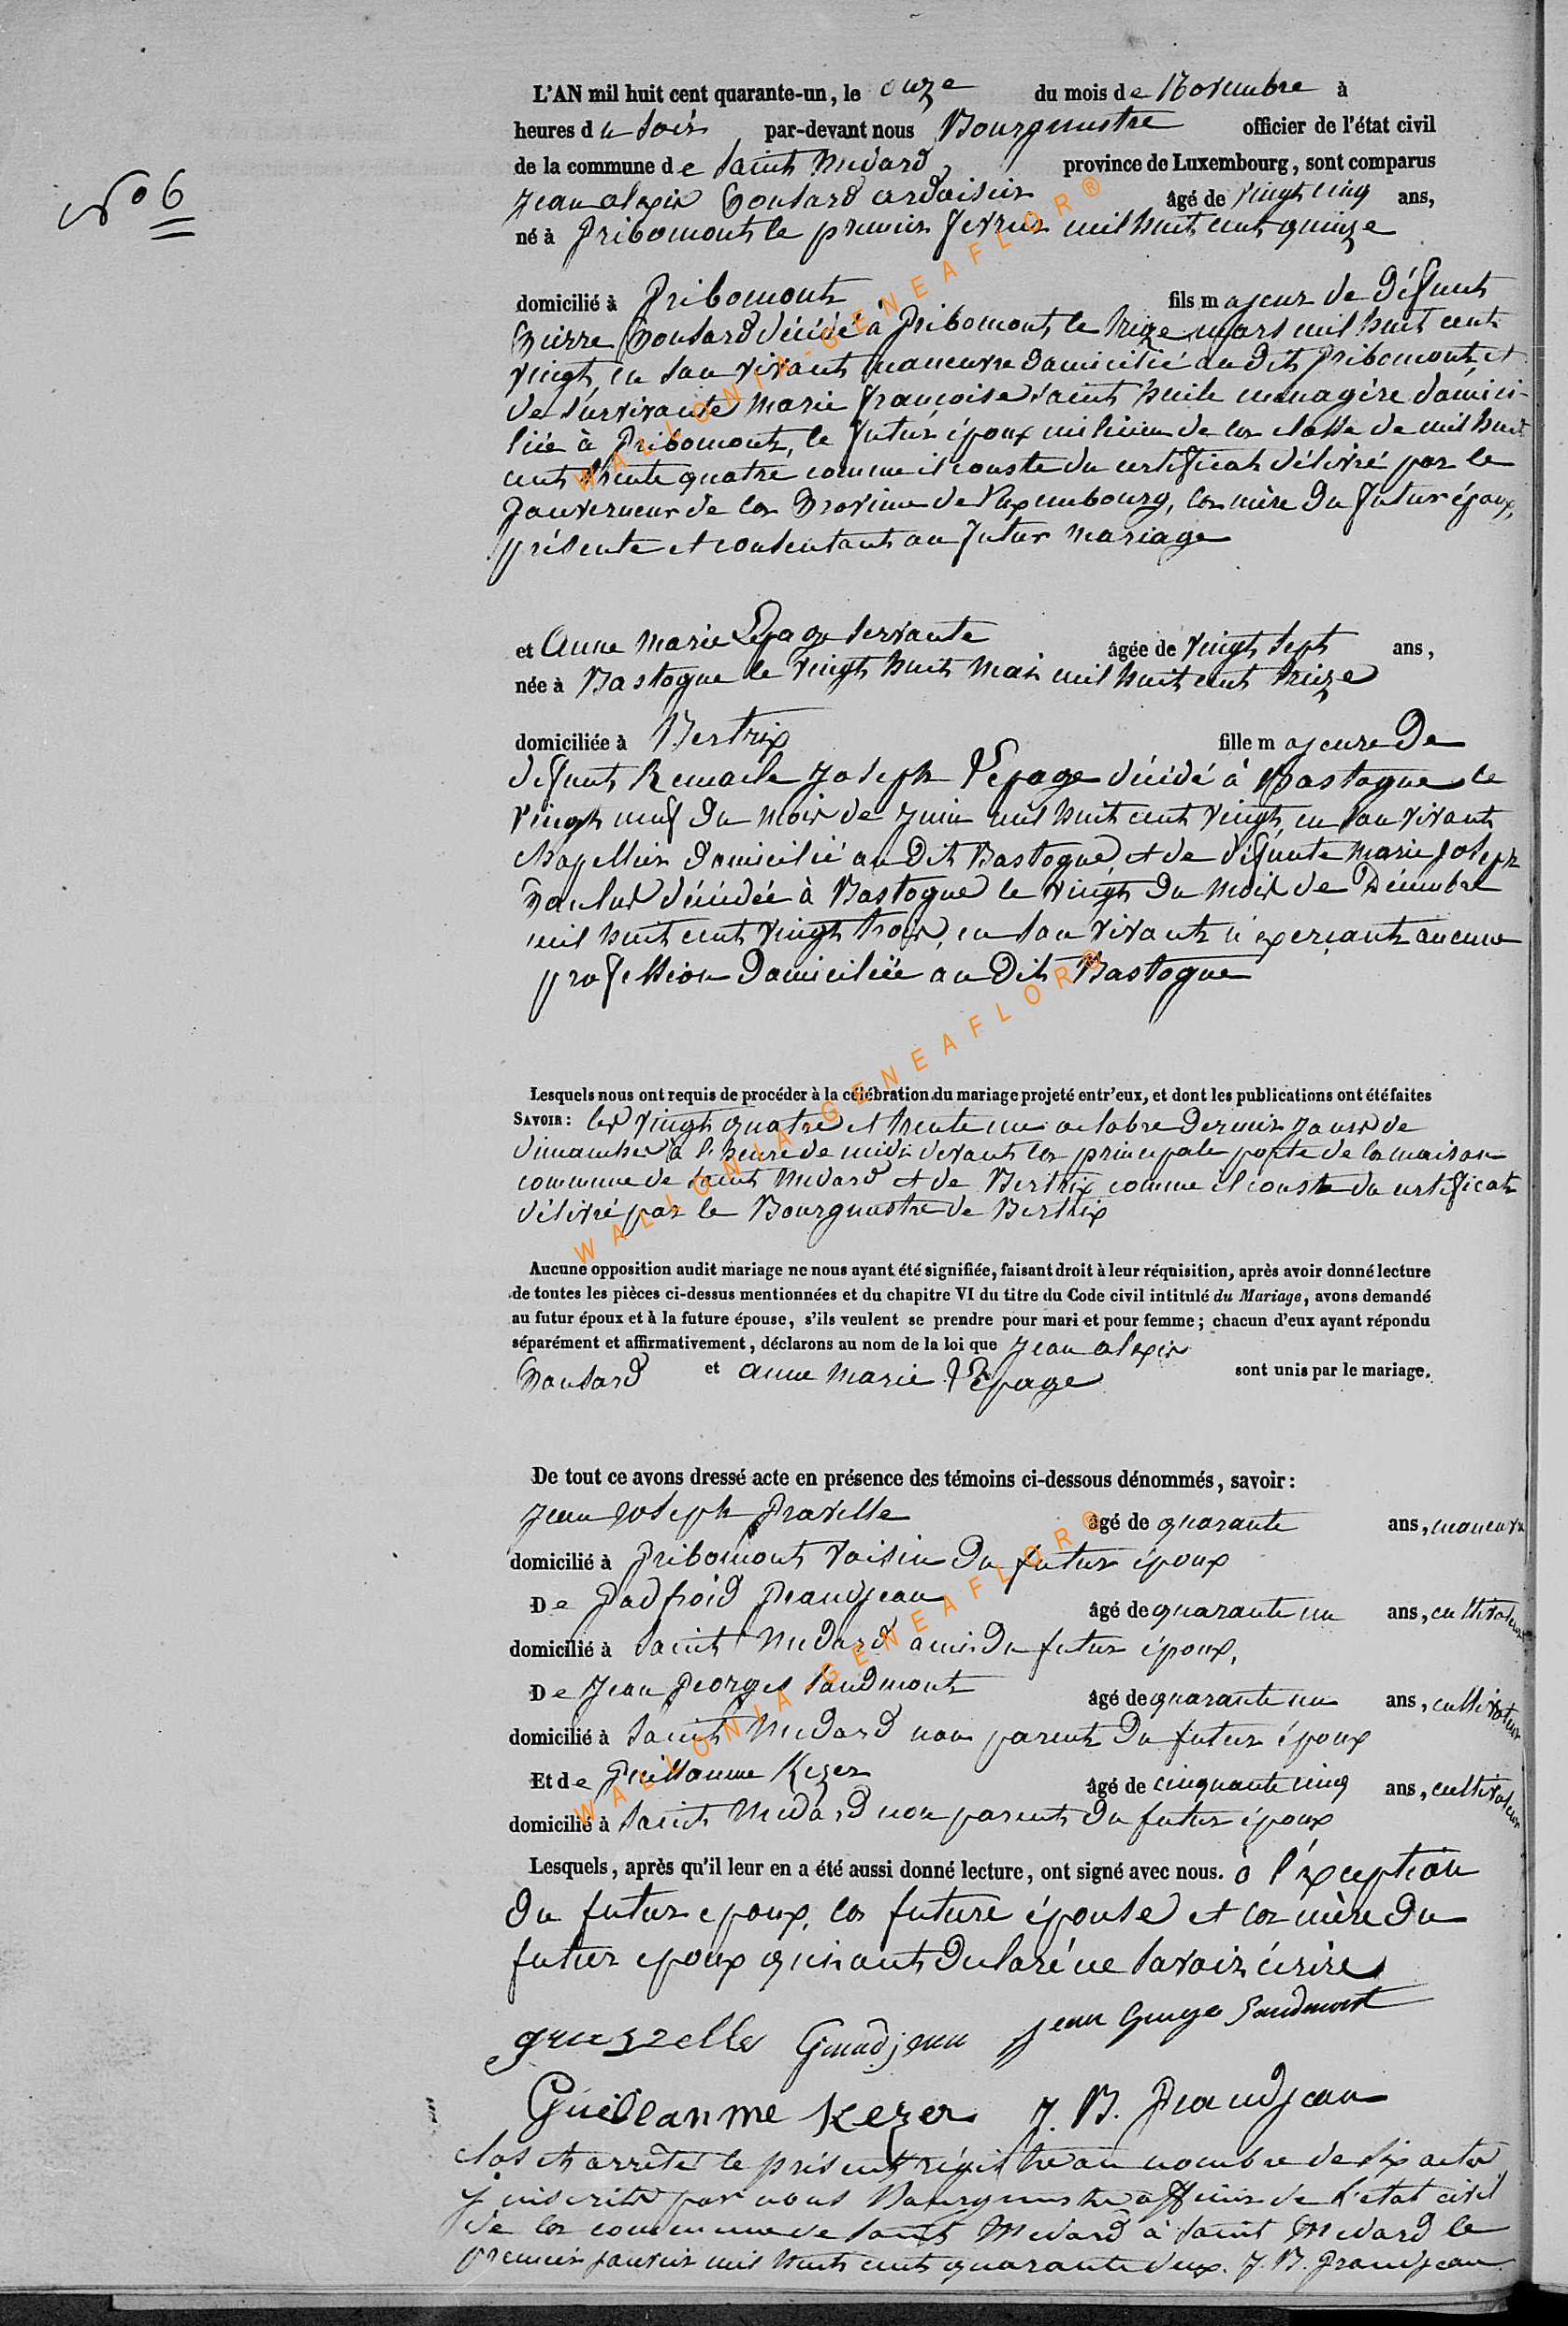 L'AN mil huit cent quarante-un, le onze du mois de Novembre à
heures du soir par-devant nous Bourgmestre officier de l'état civil
de la commune de Saint Médard province de Luxembourg, sont comparus
N° 6
Jean alexis ardoisier âgé de vingt cinq ans,
né à Gribomont le premier fevrier mil huit cent quinze
domicilié à Gribomont fils majeur de défunt
Pierre décédé à Gribomont le treize mars mil huit cent
vingt, en son vivant manoeuvre domicilié au dit Gribomont, et
de survivante Marie françoise menagère domici-
liée à Gribomont, le futur époux milicien de la classe de mil huit
cent trente quatre comme il conste du certificat délivré par le
Gouverneur de la Province de Luxembourg, la mère du futur époux,
présente et consentant au futur mariage
et Anne Marie Lepage servante âgée de vingt sept ans,
née à Bastogne le vingt huit Mai mil huit cent treize
domiciliée à Bertrix fille majeure de
défunt Remacle Joseph Lepage décédé à Bastogne le
vingt neuf du mois de Juin mil huit cent vingt, en son vivant
chapellier domicilié au dit Bastogne, et de défunte Marie Joseph
décédée à Bastogne le vingt du mois de Décembre
mil huit cent vingt trois, en son vivant n'exerçant aucune
profession domiciliée au dit Bastogne
Lesquels nous ont requis de procéder à la célébration du mariage projeté entr'eux, et dont les publications ont été faites
SAVOIR: les vingt quatre et trente un octobre dernier jours de
dimanches à l'heure de midi devant la principale porte de la maison
commune de Saint Médard et de Bertrix comme il conste du certificat
délivré par le Bourgmestre de Bertrix
Aucune opposition audit mariage ne nous ayant été signifiée, faisant droit à leur réquisition, après avoir donné lecture
de toutes les pièces ci-dessus mentionnées et du chapitre VI du titre du Code civil intitulé du Mariage, avons demandé
au futur époux et à la future épouse, s'ils veulent se prendre pour mari et pour femme; chacun d'eux ayant répondu
séparément et affirmativement, déclarons au nom de la loi que Jean alexis
et anne Marie Lepage sont unis par le mariage.
De tout ce avons dressé acte en présence des témoins ci-dessous dénommés, savoir:
Jean Joseph âgé de quarante ans, manoeuvre
domicilié à Gribomont voisin du futur époux
De Godfroid Grandjean âgé de quarante un ans, cultivateur
domicilié à Saint Médard ami du futur époux,
De Jean Georges Saudmont âgé de quarante un ans, cultivateur
domicilié à Saint Médard non parent du futur époux
Et de Guillaume Kezer âgé de cinquante cinq ans, cultivateur
domicilié à Saint Médard non parent du futur époux
Lesquels, après qu'il leur en a été aussi donné lecture, ont signé avec nous. à l'exception
du futur epoux, la future épouse et la mère du
futur epoux qui ont déclaré ne savoir écrire
Grandjean Jean George Saudmont
Guilleaume Kezer J. B. Grandjean
clos et arrêté le présent régistre au nombre de six actes
y inscrits par nous Bourgmestre officier de l'état civil
de la commune de Saint Médard à Saint Médard le
premier janvier mil huit cent quarante deux. J. B. Grandjean
WALLONIA-GENEAFLOR®
WALLONIA-GENEAFLOR®
WALLONIA-GENEAFLOR®